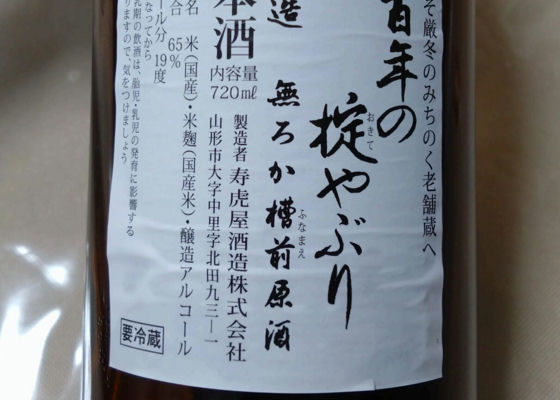 そ厳冬のみちのく老舗蔵へ
百年の
掟やぶり
おきて
造 無ろか槽前原酒
ふなまえ
本酒
内容量
720mℓ
製造者 寿虎屋酒造株式会社
山形市大字中里字北田九三―一
名 米(国産)・米麹(国産米)・醸造アルコール
合 65%
ール分 19度
なってから
乳期の飲酒は、胎児・乳児の発育に影響する
りますので、気をつけましょう
要冷蔵